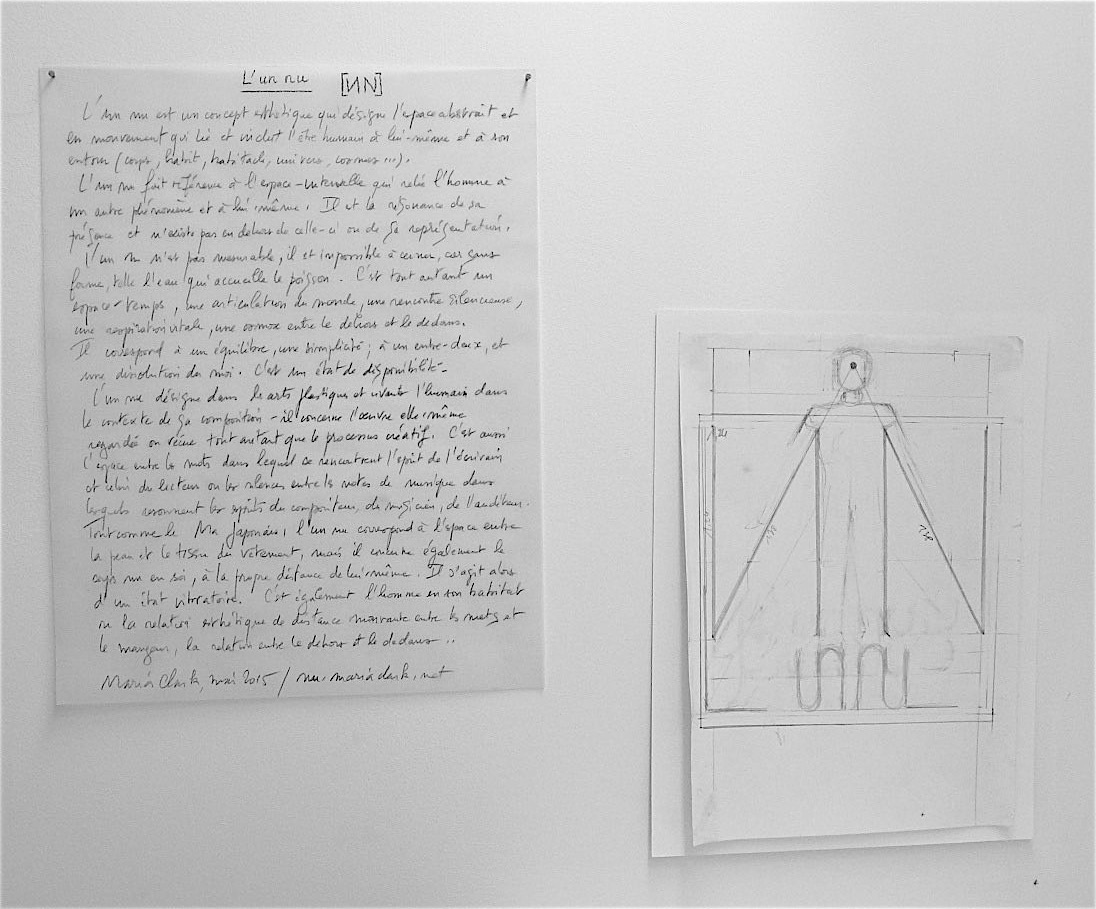 L'un nu [NN]
L'un nu est un concept esthétique qui désigne l'espace abstrait et
en mouvement qui lie et inclut l'être humain à lui-même et à son
entour (corps, habit, habitacle, univers, cosmos ...).
L'un nu fait référence à l'espace-intervalle qui relie l'homme à
un autre phénomène et à lui-même. Il est la résonance de sa
présence et n'existe pas en dehors de celle-ci ou de sa représentation.
L'un nu n'est pas mesurable, il est impossible à cerner, car sans
forme, telle l'eau qui accueille le poisson. C'est tout autant un
espace-temps, une articulation du monde, une rencontre silencieuse,
une respiration vitale, une osmose entre le dehors et le dedans.
Il correspond à un équilibre, une simplicité ; à un entre-deux, et
une dissolution du moi. C'est un état de disponibilité.
L'un nu désigne dans les arts plastiques et vivants l'humain dans
le contexte de sa composition - il concerne l'œuvre elle-même
regardée ou vécue tout autant que le processus créatif. C'est aussi
l'espace entre les mots dans lequel se rencontrent l'esprit de l'écrivain
et celui du lecteur ou les silences entre les notes de musique dans
lesquels résonnent les esprits du compositeur, du musicien, de l'auditeur.
Tout comme le Ma Japonais, l'un nu correspond à l'espace entre
la peau et le tissu du vêtement, mais il concerne également le
corps nu en soi, à la propre distance de lui-même. Il s'agit alors
d'un état vibratoire. C'est également l'homme en son habitat
ou la relation esthétique de distance mouvante entre les mets et
le mangeur, la relation entre le dehors et le dedans ..
Maria Clark, mai 2015 / nu.mariaclark.net
unnu